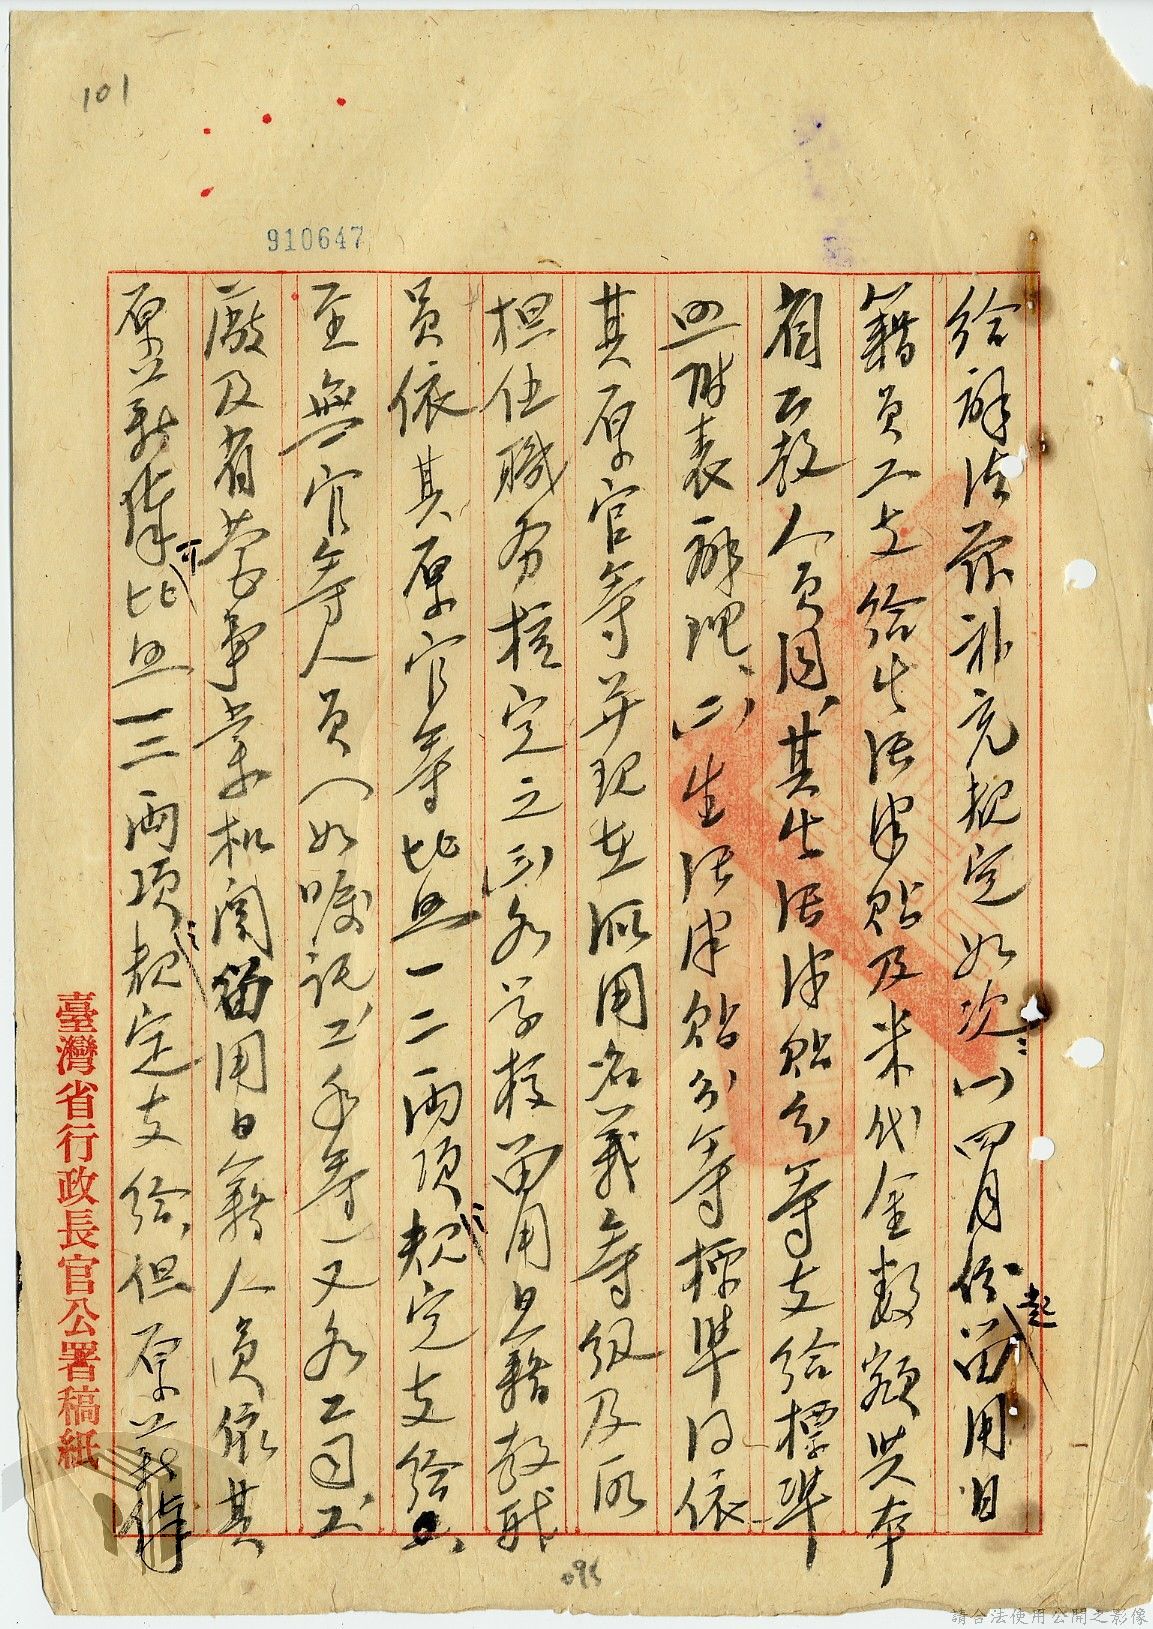 101
910647
給辦法並補充規定如次：(一)四月份起留用日
籍員工支給生活津貼及米代金數額與本
省公教人員同、其生活津貼分等支給標準
照附表辦理、(二)生活津貼分等標準得依
其原官等并現在派用名義等級及所
担任職務核定之(三)各學校留用日籍教職
員依其原官等比照一二兩項規定支給
至無官等人員(如囑託工手等)又各公司工
廠及省營事業機關留用日籍人員依其
原薪俸可比照一三兩項規定支給、但原薪俸
臺灣省行政長官公署稿紙
095
請合法使用公開之影像